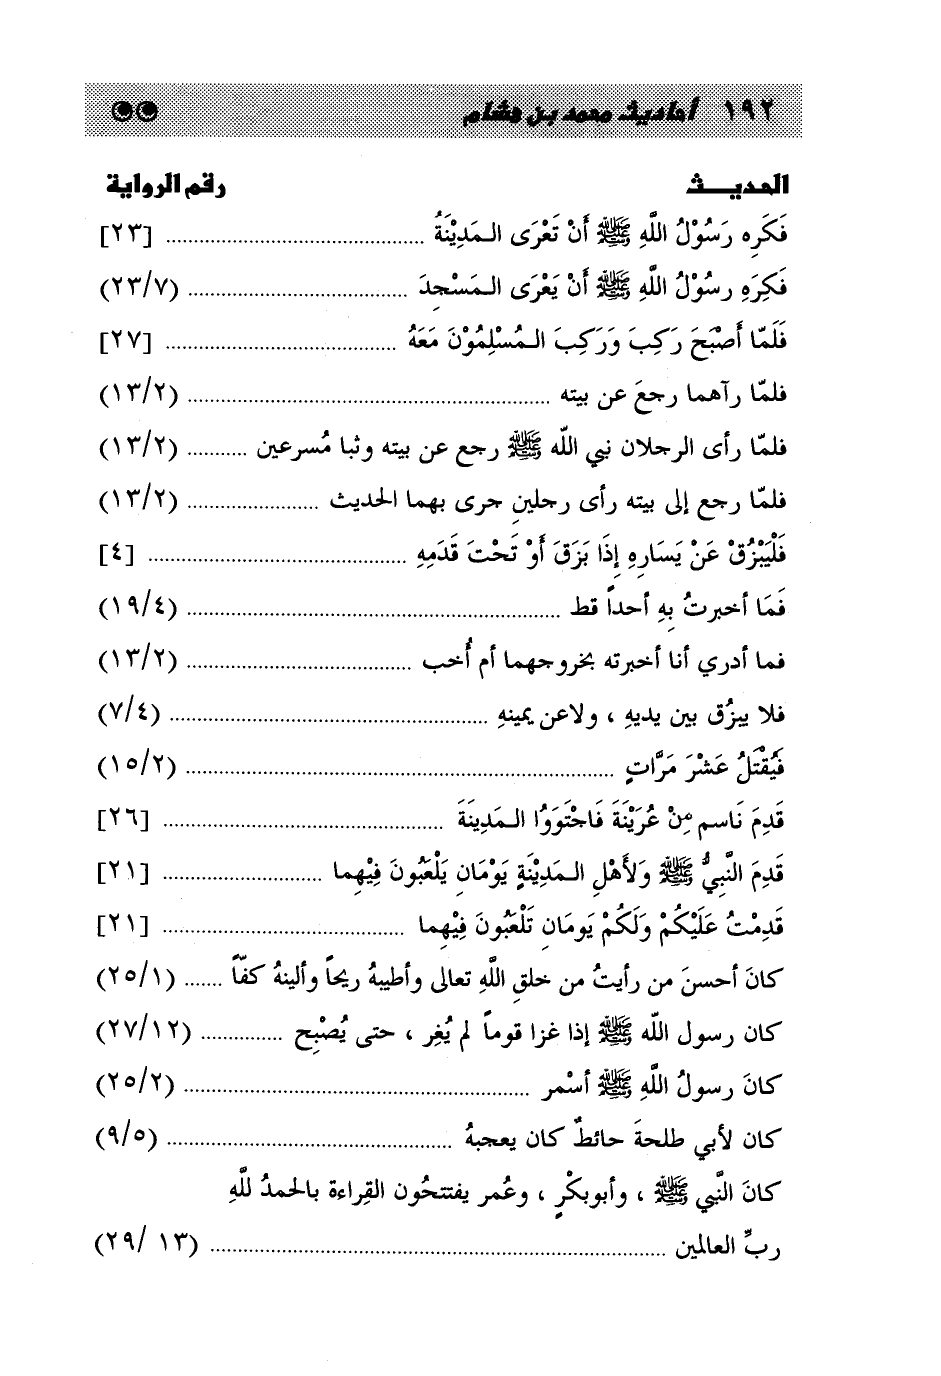 ١٩٢ أحاديث محمد بن هشام
الحديــث رقم الرواية
فَكَرِه رَسُوْلُ اللَّهِ ﷺ أَنْ تَعْرَى الـمَدِيْنَةُ ........................................ [٢٣]
فَكِرَهِ رسُوْلُ اللَّهِ ﷺ أَنْ يَعْرَى الـمَسْجِدَ ........................................ (٢٣/٧)
فَلَمّا أَصْبَحَ رَكِبَ وَرَكِبَ الـمُسْلِمُوْنَ مَعَهُ ........................................ [٢٧]
فلمّا رآهما رجعَ عن بيته ........................................ (١٣/٢)
فلمّا رأى الرحلان نبي اللّه ﷺ رجع عن بيته وثبا مُسرعين ........... (١٣/٢)
فلمّا رجع إلى بيته رأى رحلينِ حرى بهما الحديث ........................ (١٣/٢)
فَلْيَبْزُقْ عَنْ يَسَارِهِ إِذَا بَزَقَ أَوْ تَحْتَ قَدَمِهِ ........................................ [٤]
فَمَا أخبرتُ بِهِ أحداً قط ........................................ (١٩/٤)
فما أدري أنا أخبرته بخروجهما أم أُخب ........................................ (١٣/٢)
فلا يبزُق بين يديهِ ، ولاعن يمينهِ ........................................ (٧/٤)
فَيُقْتَلُ عَشْرَ مَرَّاتٍ ........................................ (١٥/٢)
قَدِمَ نَاسم مِنْ عُرَيْنَةَ فَاحْتَووُا الـمَدِينَةَ ........................................ [٢٦]
قَدِمَ النَّبِيُّ ﷺ وَلأَهْلِ الـمَدِيْنَةٍ يَوْمَانِ يَلْعَبُونَ فِيْهِما ........................ [٢١]
قَدِمْتُ عَلَيْكُمْ وَلَكُمْ يَومَانِ تَلْعَبُونَ فِيْهِما ........................................ [٢١]
كانَ أحسنَ من رأيتُ من خلقِ اللَّهِ تعالى وأطيبهُ ريحاً وألينهُ كفّاً ....... (٢٥/١)
كان رسول اللّه ﷺ إذا غزا قوماً لم يُغِر ، حتى يُصْبِح ............... (٢٧/١٢)
كانَ رسولُ اللَّهِ ﷺ أسْمر ........................................ (٢٥/٢)
كان لأبي طلحةَ حائطٌ كان يعجبهُ ........................................ (٩/٥)
كانَ النَّبي ﷺ ، وأبوبكْرٍ ، وعُمر يفتتحُون القِراءة بالحمدُ للَّهِ
ربِّ العالمين ........................................ (٢٩/ ١٣)